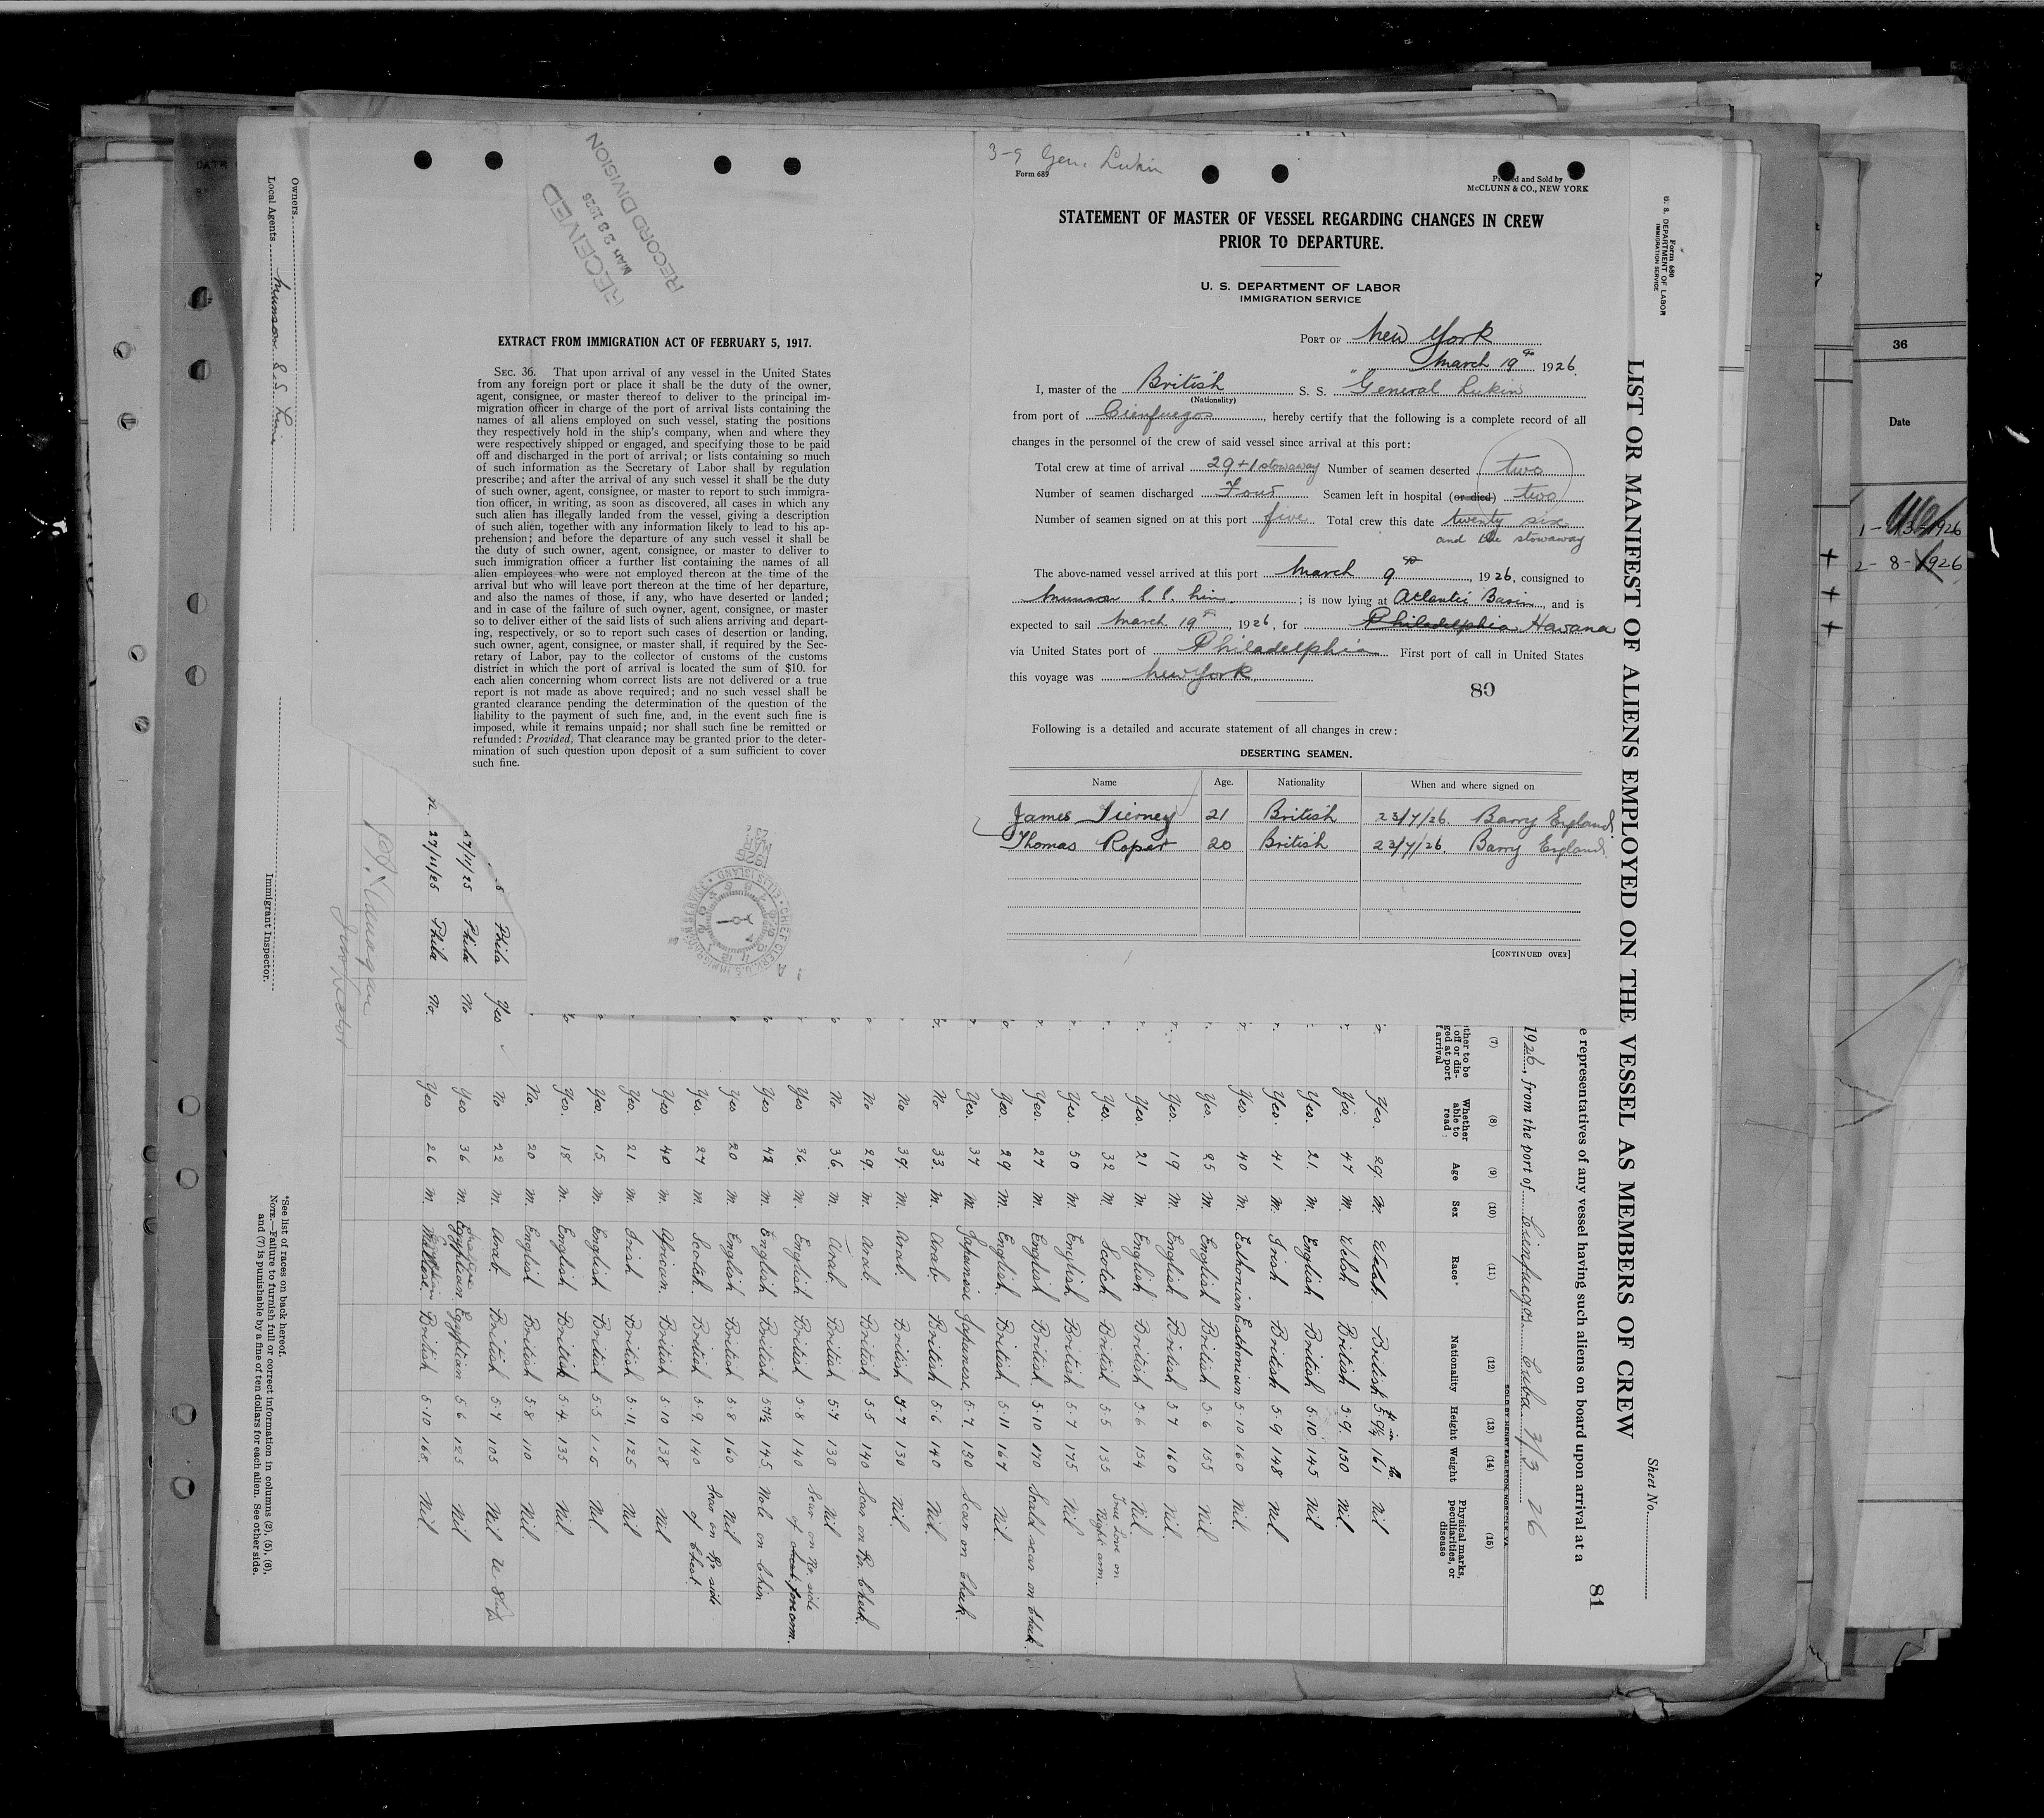 3-9 Gen. Lukin
Form 689
Printed and Sold by
McCLUNN & CO., NEW YORK
STATEMENT OF MASTER OF VESSEL REGARDING CHANGES IN CREW
PRIOR TO DEPARTURE.
U. S. DEPARTMENT OF LABOR
IMMIGRATION SERVICE
PORT OF New York
March 19th 1926
I, master of the British S. S. "General Lukin
(Nationality)
from port of Cienfuegos, hereby certify that the following is a complete record of all
changes in the personnel of the crew of said vessel since arrival at this port:
Total crew at time of arrival 29+1 stowaway Number of seamen deserted two
Number of seamen discharged Four Seamen left in hospital (or died) two
Number of seamen signed on at this port five Total crew this date twenty six
and one stowaway
The above-named vessel arrived at this port March 9th, 1926, consigned to
Munson S.S. Line; is now lying at Atlantic Basin, and is
expected to sail March 19th, 1926, for Philadelphia Havana
via United States port of Philadelphia First port of call in United States
this voyage was New York
89
Following is a detailed and accurate statement of all changes in crew:
DESERTING SEAMEN.
Name Age. Nationality When and where signed on
James Tierney 21 British 23/7/26. Barry England.
Thomas Roper 20 British 23/7/26. Barry England.
[CONTINUED OVER]
RECEIVED
MAR 23 1926
RECORD DIVISION
EXTRACT FROM IMMIGRATION ACT OF FEBRUARY 5, 1917.
SEC. 36. That upon arrival of any vessel in the United States
from any foreign port or place it shall be the duty of the owner,
agent, consignee, or master thereof to deliver to the principal im-
migration officer in charge of the port of arrival lists containing the
names of all aliens employed on such vessel, stating the positions
they respectively hold in the ship's company, when and where they
were respectively shipped or engaged, and specifying those to be paid
off and discharged in the port of arrival; or lists containing so much
of such information as the Secretary of Labor shall by regulation
prescribe; and after the arrival of any such vessel it shall be the
duty of such owner, agent, consignee, or master to report to such immigra-
tion officer, in writing, as soon as discovered, all cases in which any
such alien has illegally landed from the vessel, giving a description
of such alien, together with any information likely to lead to his ap-
prehension; and before the departure of any such vessel it shall be
the duty of such owner, agent, consignee, or master to deliver to
such immigration officer a further list containing the names of all
alien employees who were not employed thereon at the time of the
arrival but who will leave port thereon at the time of her departure,
and also the names of those, if any, who have deserted or landed;
and in case of the failure of such owner, agent, consignee, or master
so to deliver either of the said lists of such aliens arriving and depart-
ing, respectively, or so to report such cases of desertion or landing,
such owner, agent, consignee, or master shall, if required by the Sec-
retary of Labor, pay to the collector of customs of the customs
district in which the port of arrival is located the sum of $10. for
each alien concerning whom correct lists are not delivered or a true
report is not made as above required; and no such vessel shall be
granted clearance pending the determination of the question of the
liability to the payment of such fine, and, in the event such fine is
imposed, while it remains unpaid; nor shall such fine be remitted or
refunded: Provided, That clearance may be granted prior to the deter-
mination of such question upon deposit of a sum sufficient to cover
such fine.
Form 680
U. S. DEPARTMENT OF LABOR
IMMIGRATION SERVICE
Sheet No.
81
LIST OR MANIFEST OF ALIENS EMPLOYED ON THE VESSEL AS MEMBERS OF CREW
e representatives of any vessel having such aliens on board upon arrival at a
1926, from the port of Cienfuegos Cuba 3/3 26
(7) (8) (9) (10) (11) (12) (13) (14) (15)
Whether able to read Age Sex Race* Nationality Height Weight Physical marks, peculiarities, or disease
Yes. 29. M. Welsh. British 5.9½ 161 Nil
Yes. 47 M. Welsh British 5.9. 150 Nil.
Yes. 21. M English British 5.10. 145 Nil
Yes. 41 M. Irish British 5.9 148 Nil.
Yes. 40 M. Esthonian Esthonian 5.10 160 Nil.
Yes. 25 M. English British 5.6 155 Nil
Yes. 19 M. English British 5.7 160 Nil.
Yes. 21 M. English British 5.6 154 Nil
Yes. 32 M. Scotch British 5.5 135 True Love on Right arm.
Yes. 50 M. English British 5.7 175 Nil
Yes. 27 M. English British. 5.10 170 Scald scar on cheek.
Yes. 29 M. English British 5.11 167 Nil.
Yes. 37 M. Japanese Japanese. 5.7. 130 Scar on cheek.
No. 33. M. Arab British 5.6 140 Nil.
No 39. M. Arab. British 5.7 130 Nil.
No 29. M. Arab. British 5.5 140 Scar on Rt. cheek.
No 36. M. Arab. British 5.7 130 Nil
Yes 36. M. English British 5.8 140 Scar on Rt. side of chest, forearm.
Yes 42 M. English British 5.7½ 145. Mole on chin
Yes 20 M. English British 5.8 160 Nil
Yes. 27 M. Scotch. British 5.9. 140 Scar on Rt. side of chest.
Yes 40 M. African. British 5.10 138 Nil
Yes. 21 M. Irish British 5.11. 125 Nil
Yes. 15. M. English British 5.5 115 Nil
Yes. 18 M. English British 5.4. 135 Nil.
No. 20 M. English British 5.8 110 Nil.
Phila Yes No 22 M. Arab British 5.7 105 Nil
27/11/25 Phila No Yes 36 M. Egyptian Egyptian 5.6 125 Nil
27/11/25 Phila No. Yes 26 M. Maltese. British 5.10 168. Nil.
Inspector
Owners
Local Agents Munson S.S. Line
Immigrant Inspector.
*See list of races on back hereof.
NOTE.—Failure to furnish full or correct information in columns (2), (5), (6),
and (7) is punishable by a fine of ten dollars for each alien. See other side.
36
Date
2-8-1926